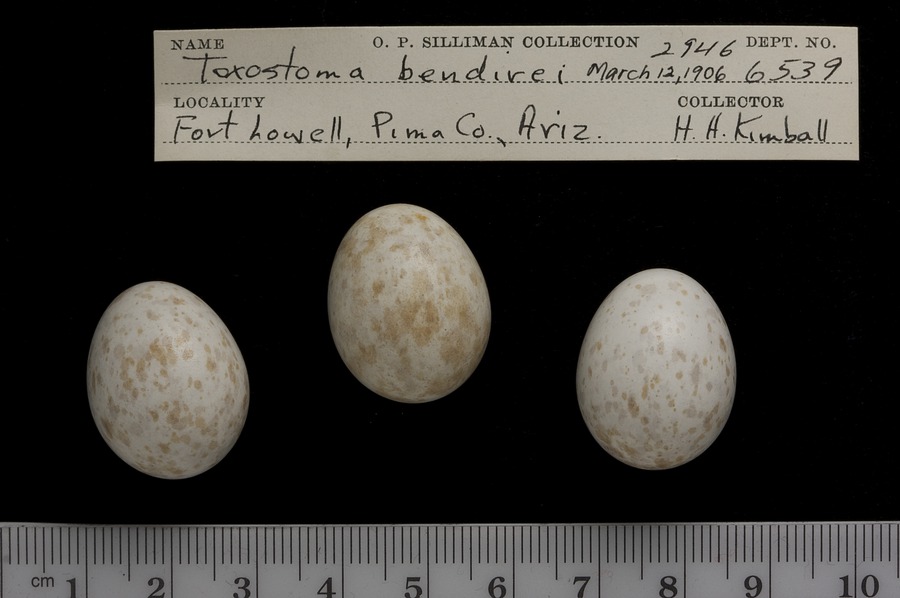 NAME O. P. SILLIMAN COLLECTION 2946 DEPT. NO.
Toxostoma bendirei March 12, 1906 6539
LOCALITY COLLECTOR
Fort Lowell, Pima Co., Ariz. H. H. Kimball
cm 1 2 3 4 5 6 7 8 9 10